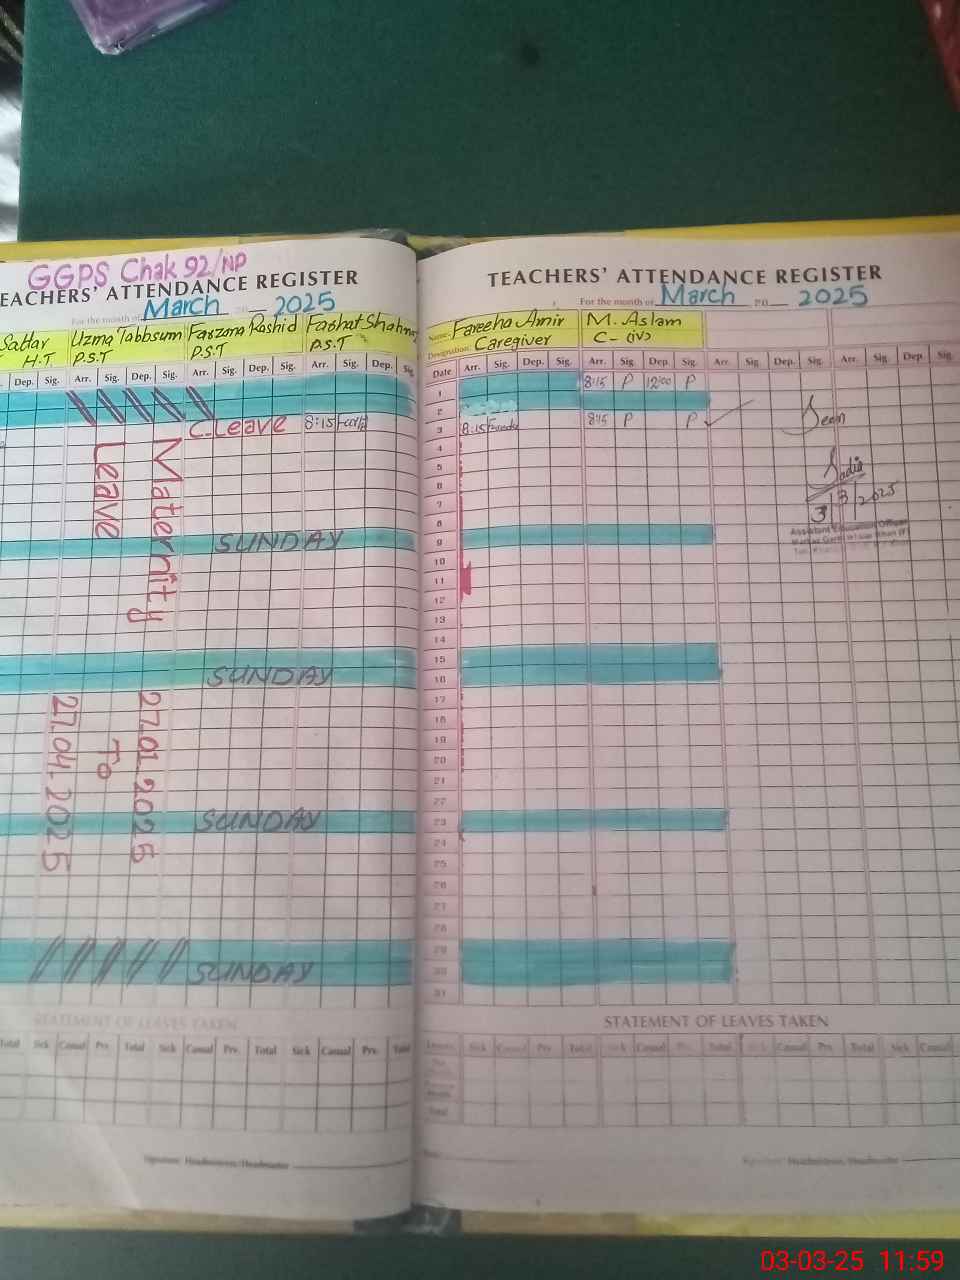 GGPS Chak 92/NP
TEACHERS' ATTENDANCE REGISTER
For the month of March 20 2025
Sattar Uzma Tabbsum Farzana Rashid Farhat Shahnaz
H.T P.S.T P.S.T P.S.T
Dep. Sig. Arr. Sig. Dep. Sig. Arr. Sig. Dep. Sig. Arr. Sig. Dep. Sig.
C-Leave 8:15
Maternity
Leave
SUNDAY
SUNDAY
27.01.2025
To
27.04.2025
SUNDAY
SUNDAY
STATEMENT OF LEAVES TAKEN
Total Sick Casual Prv. Total Sick Casual Prv. Total Sick Casual Prv. Total
Signature Headmistress/Headmaster
TEACHERS' ATTENDANCE REGISTER
For the month of March 20 2025
Name: Fareeha Amir M. Aslam
Designation: Caregiver C-(iv)
Date Arr. Sig. Dep. Sig. Arr. Sig. Dep. Sig. Arr. Sig. Dep. Sig. Arr. Sig. Dep. Sig.
1 8:15 P 12:00 P
2
3 8:15 8:15 P P Seen
4
5
6 Sadia
7 3/3/2025
8
9 Assistant Education Officer
10
11
12
13
14
15
16
17
18
19
20
21
22
23
24
25
26
27
28
29
30
31
STATEMENT OF LEAVES TAKEN
Leaves Sick Casual Prv. Total Sick Casual Prv. Total Sick Casual Prv. Total Sick Casual
Total
Signature Headmistress/Headmaster
03-03-25 11:59